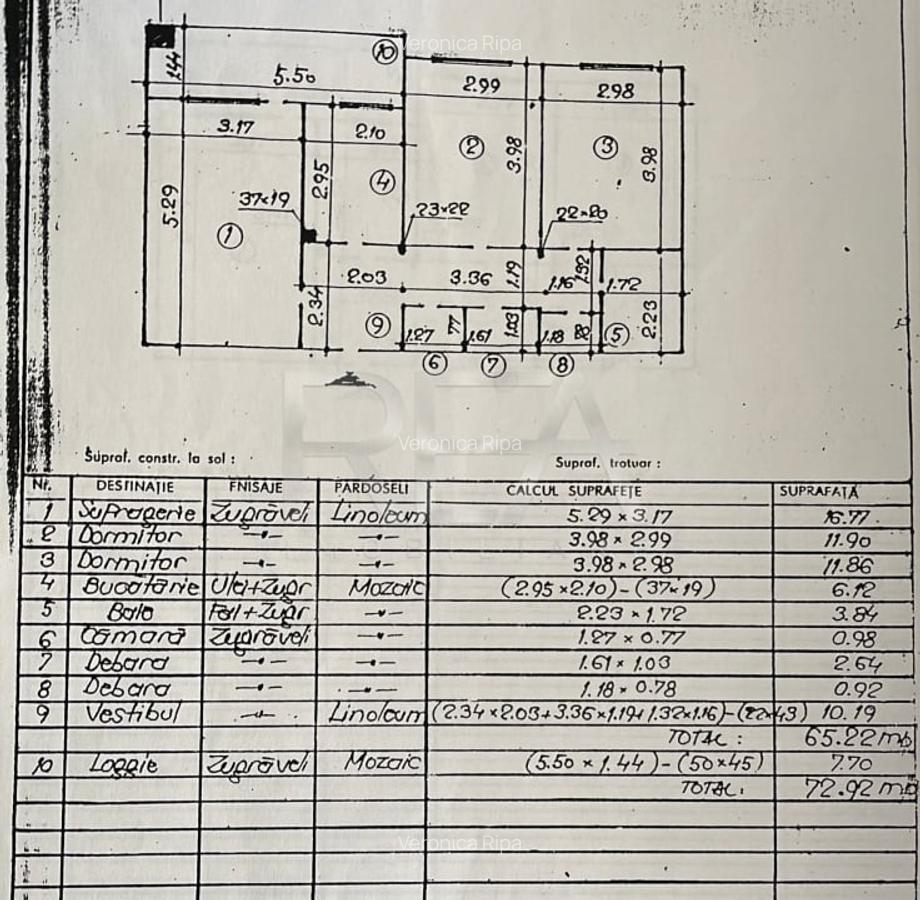 Veronica Ripa
10
1.44
5.50
2.99
2.98
3.17
2.10
2
3.98
3
3.98
2.95
4
5.29
37×19
23×22
22×20
1
2.03
3.36
1.19
1.16
1.32
1.72
2.34
9
1.27
77
1.61
1.03
1.18
5
2.23
6
7
8
REA
Veronica Ripa
Supraf. constr. la sol :
Supraf. trotuar :
Nr. DESTINAȚIE FNISAJE PARDOSELI CALCUL SUPRAFEȚE SUPRAFAȚĂ
1 Sufragerie Zugrăveli Linoleum 5.29 × 3.17 16.77
2 Dormitor —•— —•— 3.98 × 2.99 11.90
3 Dormitor —•— —•— 3.98 × 2.98 11.86
4 Bucătărie Ulei+Zugr Mozaic (2.95×2.10)-(37×19) 6.12
5 Baie Fai+Zugr —•— 2.23 × 1.72 3.84
6 Cămară Zugrăveli —•— 1.27 × 0.77 0.98
7 Debara —•— —•— 1.61 × 1.03 2.64
8 Debara —•— —•— 1.18 × 0.78 0.92
9 Vestibul —•— Linoleum (2.34×2.03+3.36×1.19+1.32×1.16)-(22×43) 10.19
TOTAL : 65.22 mp
10 Loggie Zugrăveli Mozaic (5.50 × 1.44)-(50×45) 7.70
TOTAL: 72.92 mp
Veronica Ripa